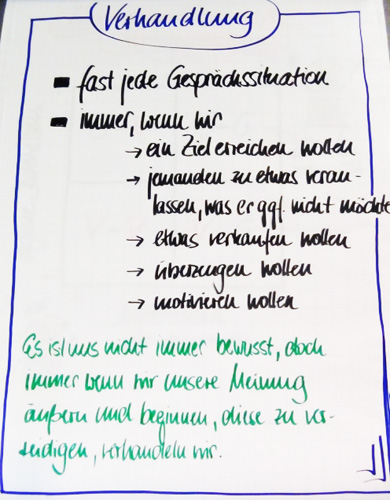 Verhandlung
fast jede Gesprächssituation
immer, wenn wir
→ ein Ziel erreichen wollen
→ jemanden zu etwas veran-
lassen, was er ggf. nicht möchte
→ etwas verkaufen wollen
→ überzeugen wollen
→ motivieren wollen
Es ist uns nicht immer bewusst, doch
immer wenn wir unsere Meinung
äußern und beginnen, diese zu ver-
teidigen, verhandeln wir.